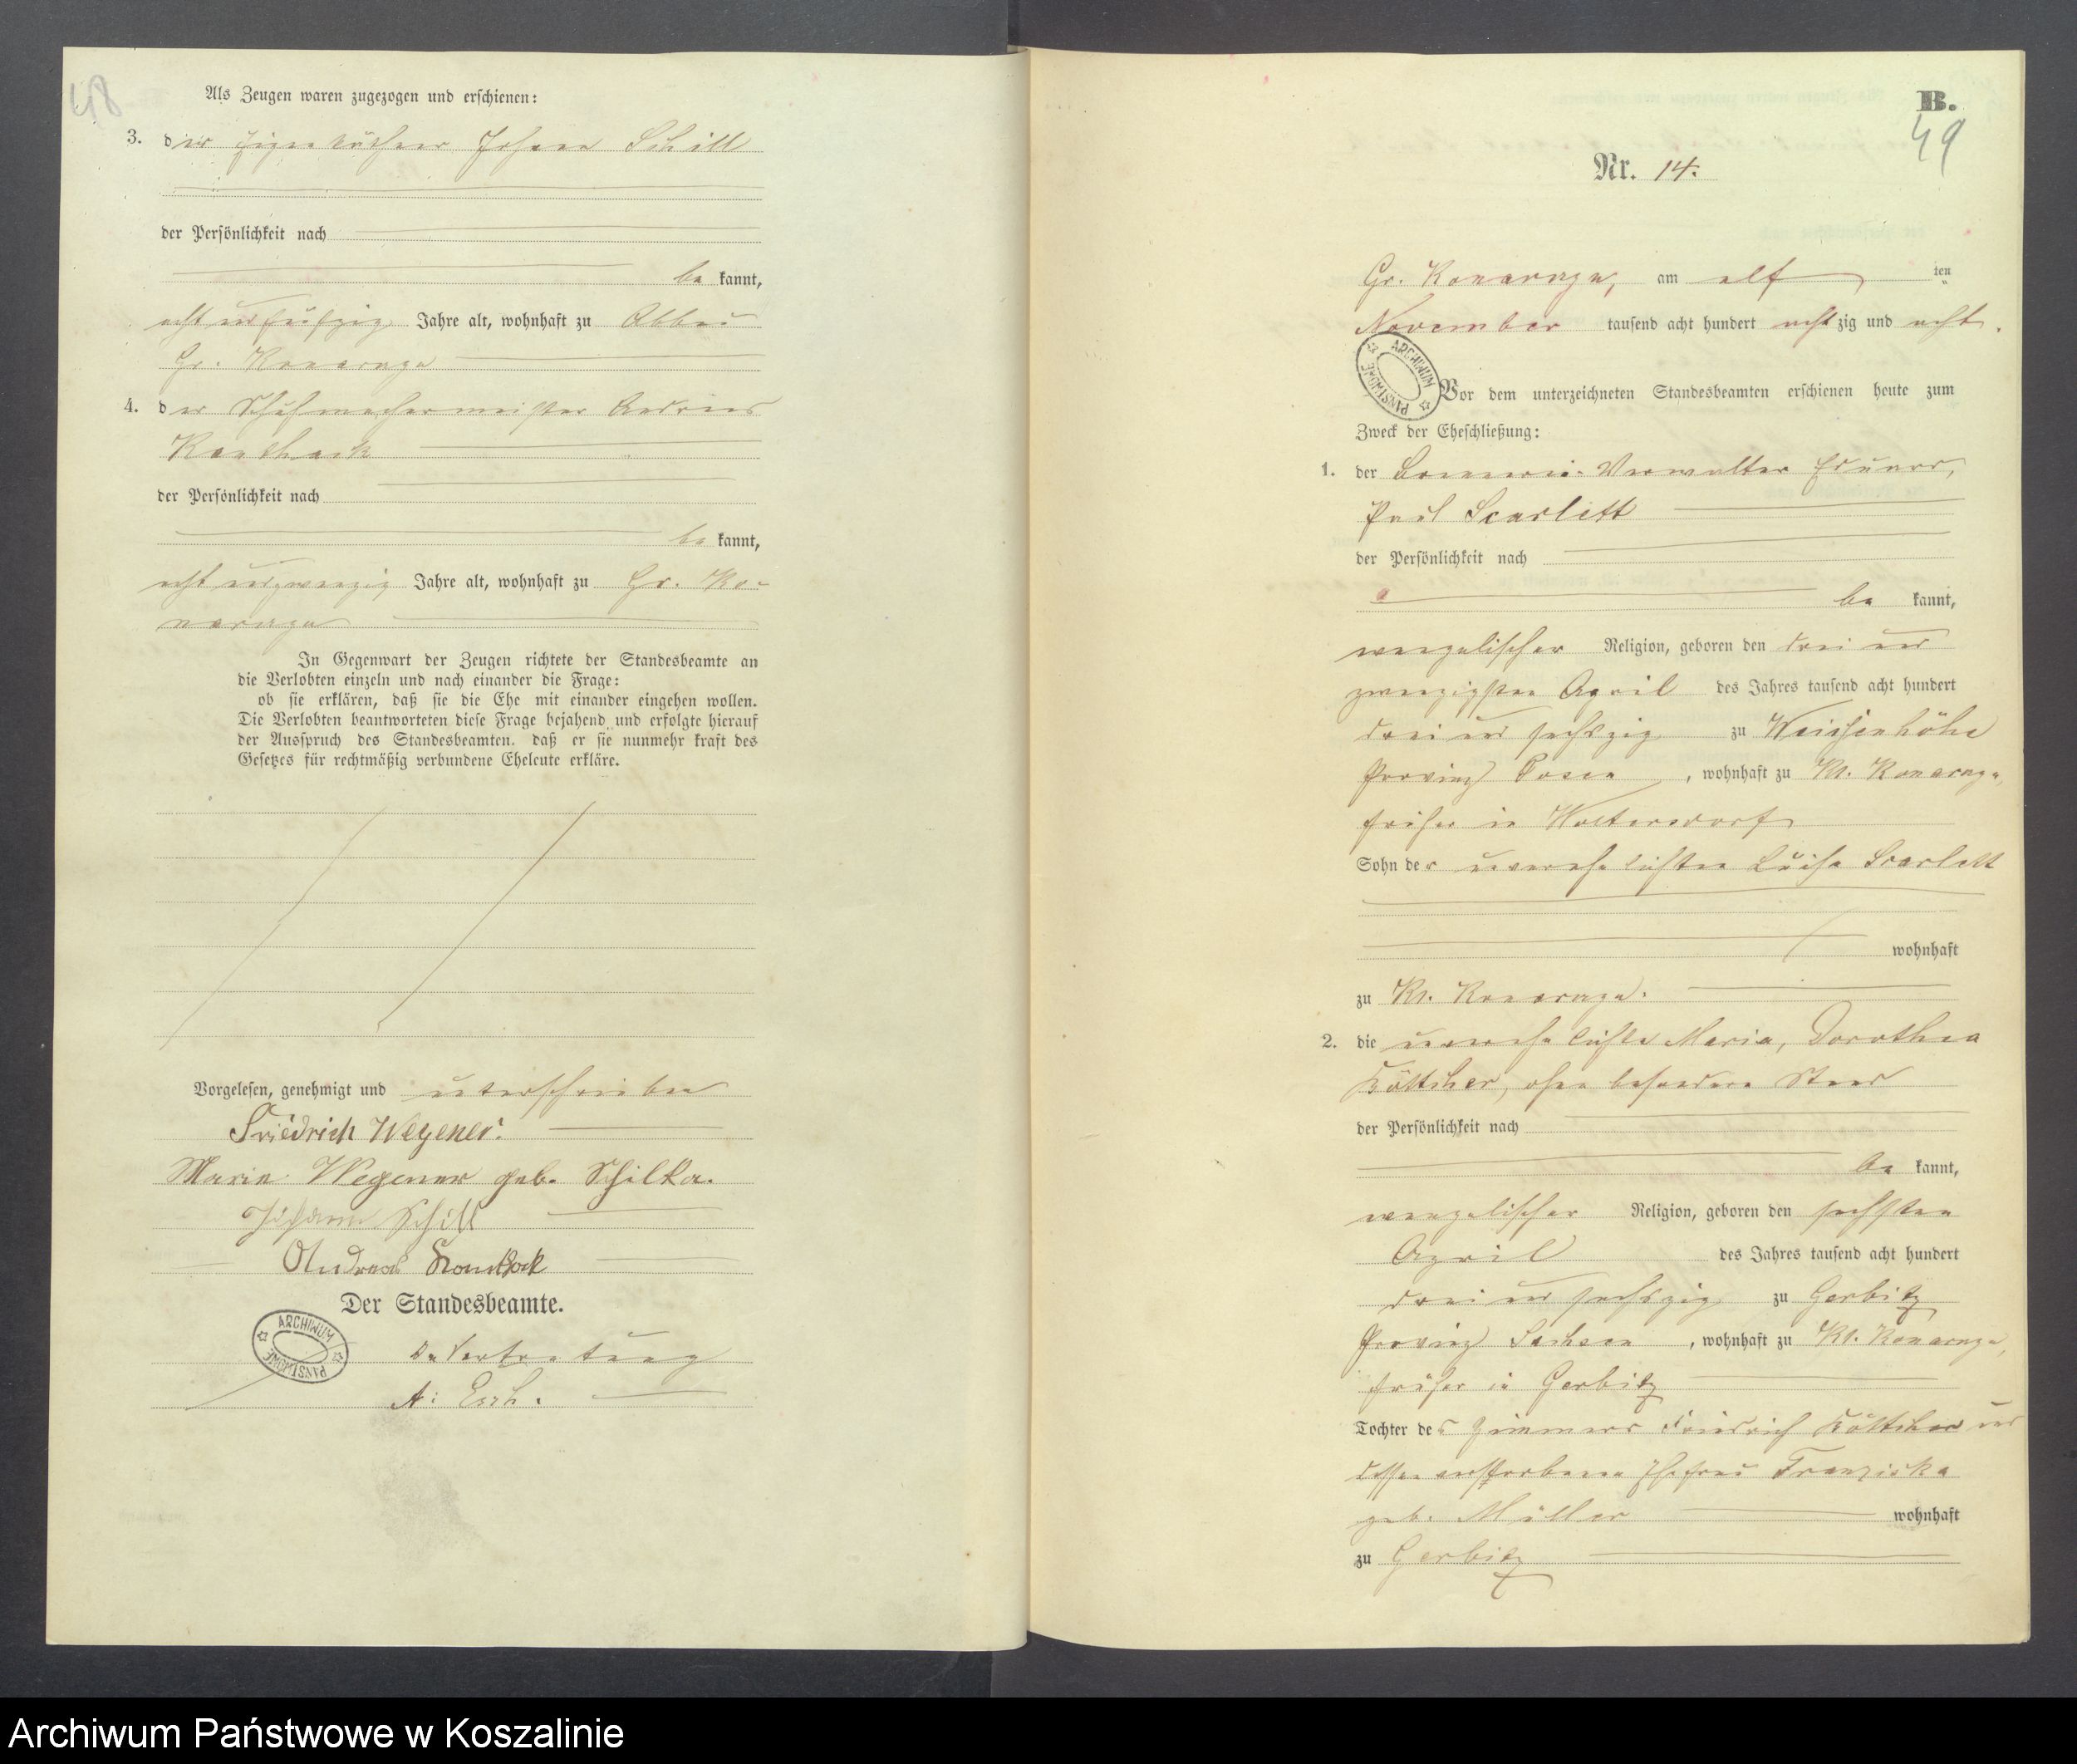 48
Als Zeugen waren zugezogen und erschienen:
3. der Eigenthümer Johann Schill
der Persönlichkeit nach
bekannt,
acht und fünfzig Jahre alt, wohnhaft zu Abbau
Gr. Konarzyn
4. der Schuhmachermeister Andreas
der Persönlichkeit nach
bekannt,
acht und zwanzig Jahre alt, wohnhaft zu Gr. Ko-
narzyn
In Gegenwart der Zeugen richtete der Standesbeamte an
die Verlobten einzeln und nach einander die Frage:
ob sie erklären, daß sie die Ehe mit einander eingehen wollen.
Die Verlobten beantworteten diese Frage bejahend und erfolgte hierauf
der Ausspruch des Standesbeamten, daß er sie nunmehr kraft des
Gesetzes für rechtmäßig verbundene Eheleute erkläre.
Vorgelesen, genehmigt und unterschrieben
Friedrich Wegener.
Marie Wegener geb. Schilka.
Johann Schill
Andreas
Der Standesbeamte.
In Vertretung
ARCHIWUM PAŃSTWOWE
B.
49
Nr. 14.
Gr. Konarzyn, am elf ten
November tausend acht hundert achtzig und acht.
ARCHIWUM PAŃSTWOWE
Vor dem unterzeichneten Standesbeamten erschienen heute zum
Zweck der Eheschließung:
1. der Brennerei-Verwalter Eduard,
Paul Scarlett
der Persönlichkeit nach
bekannt,
evangelischer Religion, geboren den drei und
zwanzigsten April des Jahres tausend acht hundert
drei und sechszig zu Weissenhöhe
Provinz Posen, wohnhaft zu Kl. Konarzyn,
früher in Woltersdorf
Sohn der unverehelichten Luise Scarlett
wohnhaft
zu Kl. Konarzyn.
2. die unverehelichte Maria, Dorothea
Böttcher, ohne besonderen Stand
der Persönlichkeit nach
bekannt,
evangelischer Religion, geboren den sechsten
April des Jahres tausend acht hundert
drei und sechszig zu Gerbitz
Provinz Sachsen, wohnhaft zu Kl. Konarzyn,
früher in Gerbitz
Tochter des Friedrich Böttcher und
dessen verstorbenen Ehefrau Franziska
geb. Müller wohnhaft
zu Gerbitz
Archiwum Państwowe w Koszalinie